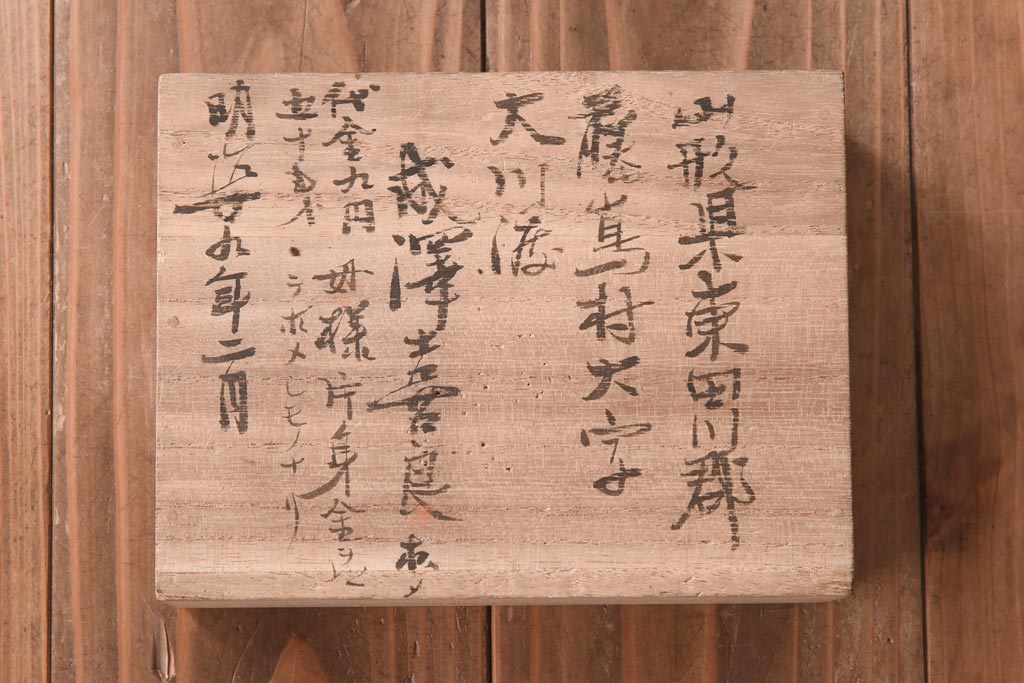 山形県東田川郡
藤島村大字
大川渡
成澤喜良
代金九円
五十戔
母様片身金ヲ以
ラホメシモノナリ
明治廿九年二月